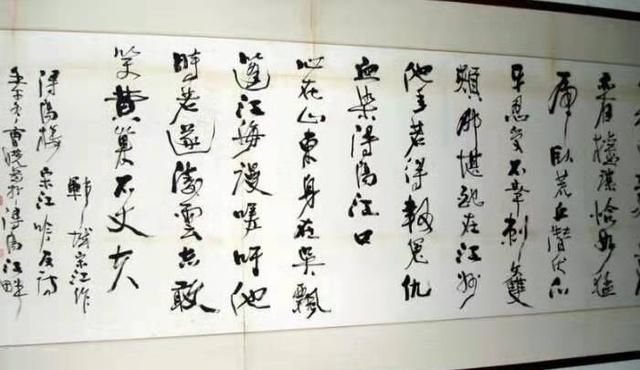 亦有權謀恰如猛
虎卧荒丘潛伏爪
牙忍受不幸刺文雙
頰那堪配在江州
他年若得報冤仇
血染潯陽江口
心在山東身在吳飄
蓬江海漫嗟吁他
時若遂凌雲志敢
笑黄巢不丈夫
鄆城宋江作
潯陽樓宋江吟反詩
冬曹於潯陽江畔